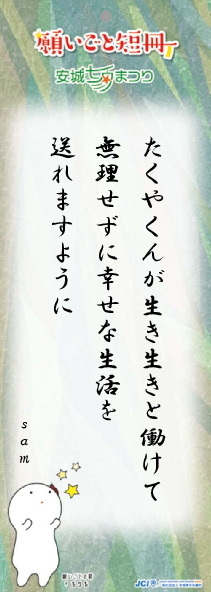 願いごと短冊
安城七夕まつり
たくやくんが生き生きと働けて
無理せずに幸せな生活を
送れますように
sam
JCI